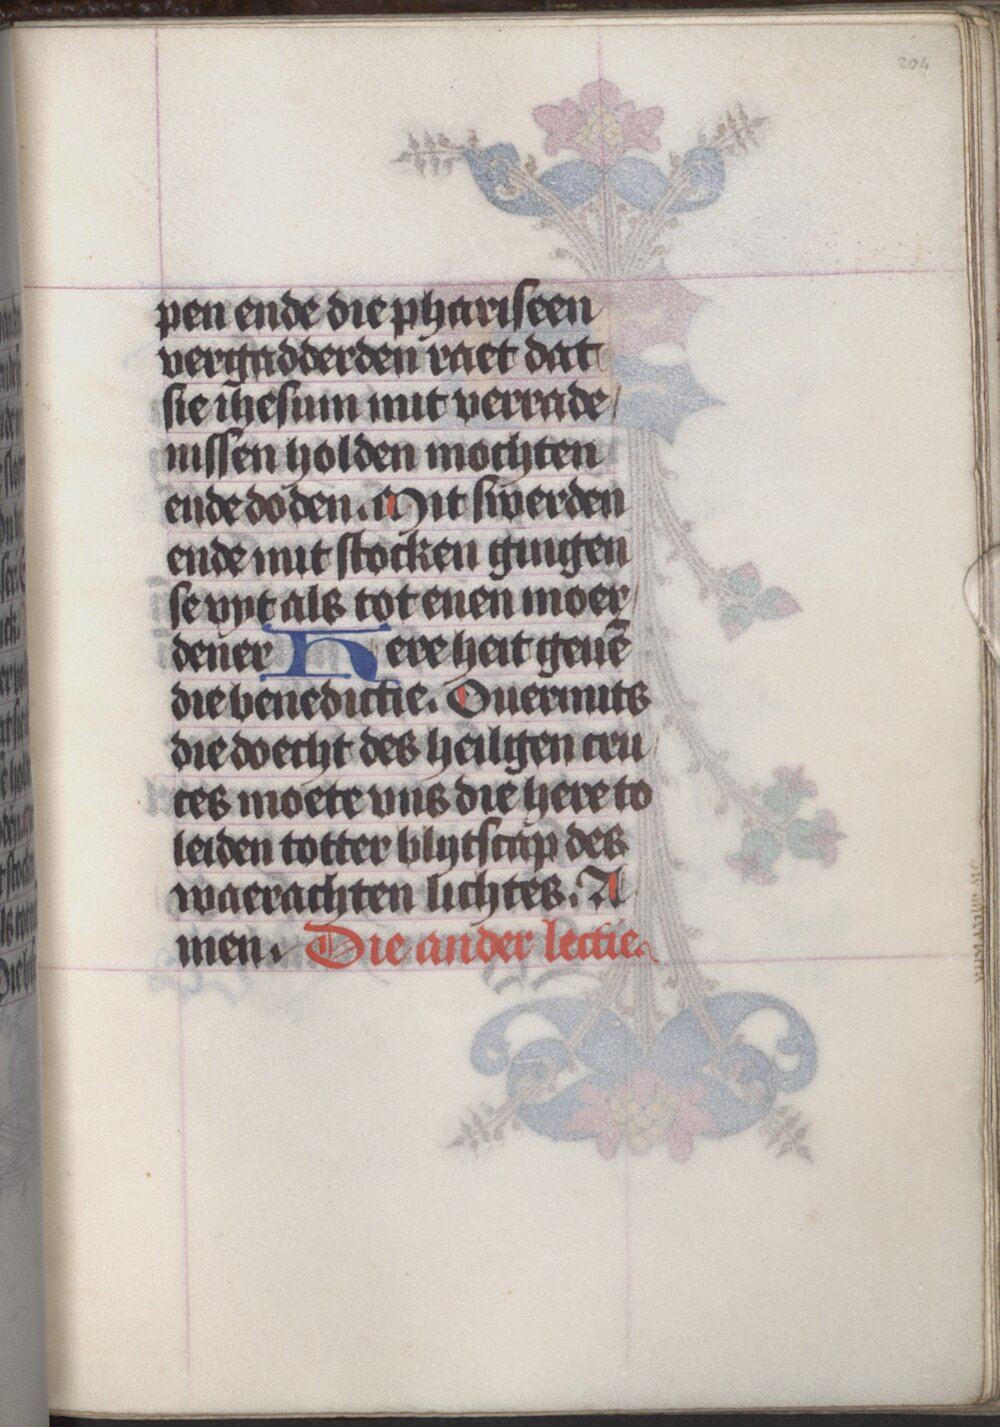 204
pen ende die phariseen
vergadderden raet dat
sie ih̄esum mit verrade
nissen holden mochten
ende doden. Mit swerden
ende mit stocken gingen
se vyt als tot enen moer
dener Here heit geuē
die benedictie. Ouermits
die doecht des heiligen cru
ces moete vns die here to
leiden totter blytscap des
waerachten lichtes. A
men. Die ander lectie